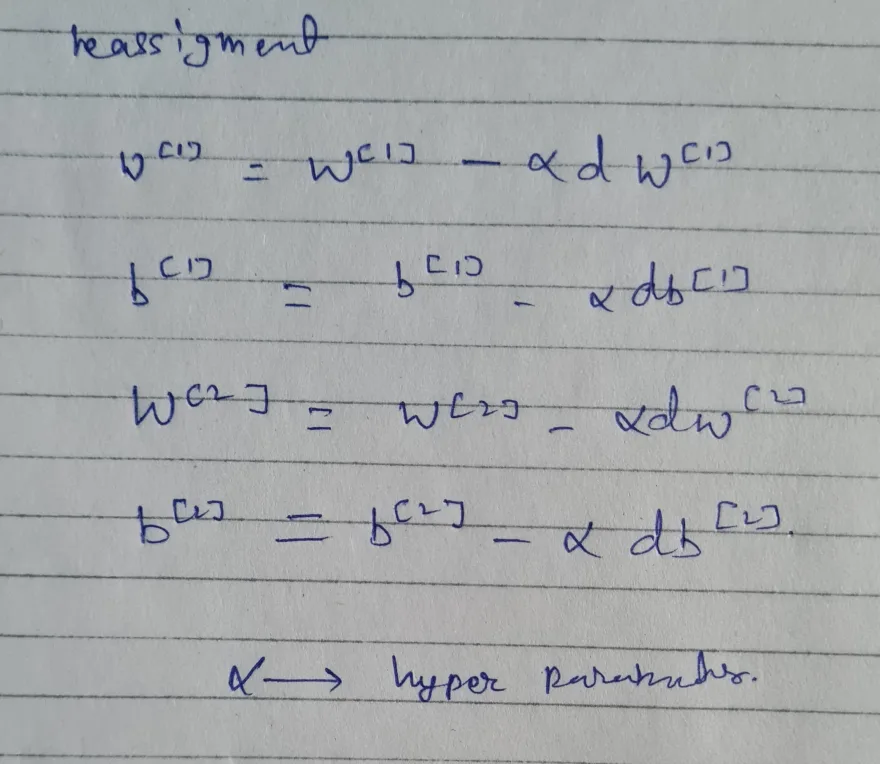 reassigment
W^[1] = W^[1] - αd W^[1]
b^[1] = b^[1] - α db^[1]
W^[2] = W^[2] - αdw^[2]
b^[2] = b^[2] - α db^[2].
α → hyper parameters.